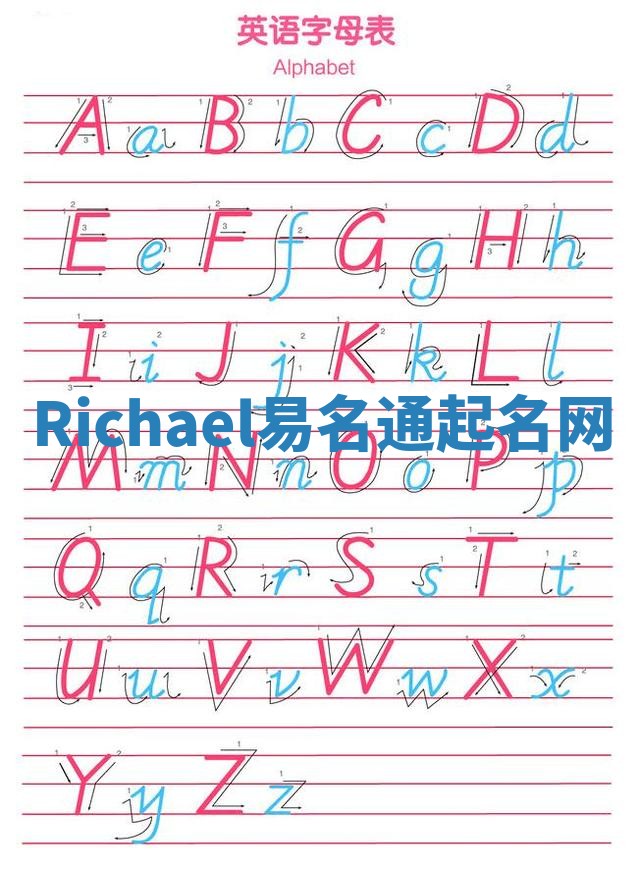 英语字母表
Alphabet
A a B b C c D d
E e F f G g H h
I i J j K k L l
Richael易名通起名网
M m N n O o P p
Q q R r S s T t
U u V v W w X x
Y y Z z